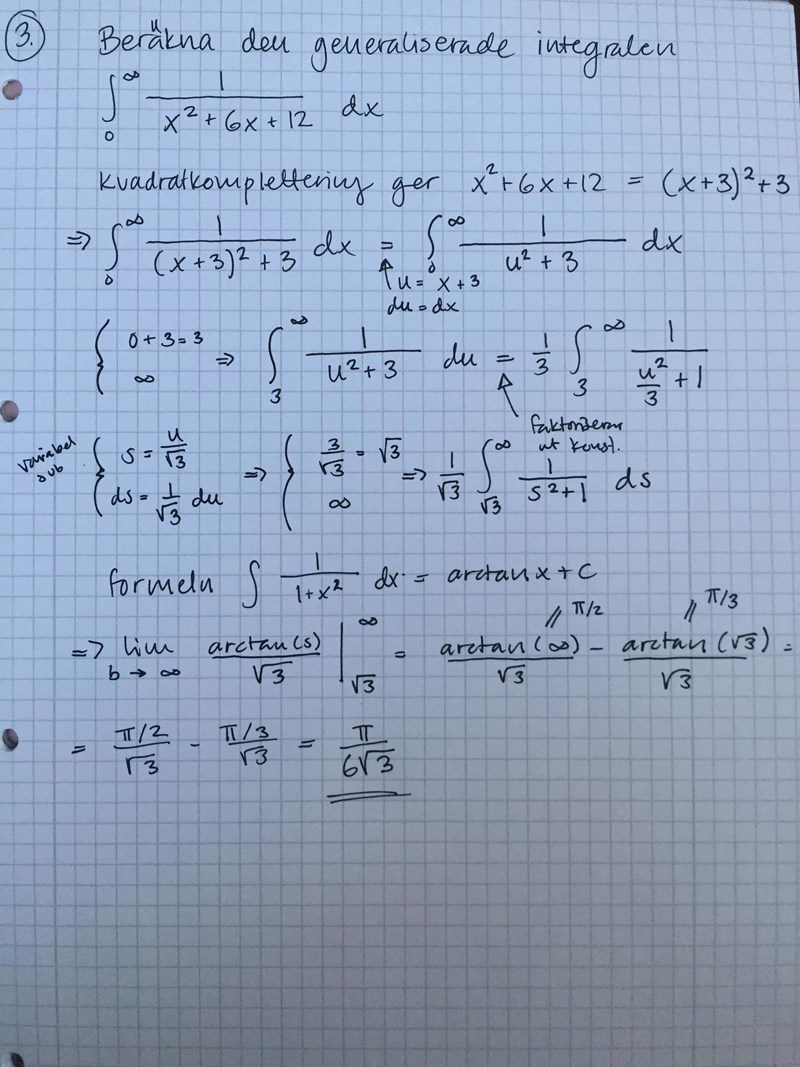 3. Beräkna den generaliserade integralen
∫₀^∞ 1/(x² + 6x + 12) dx
kvadratkomplettering ger x² + 6x + 12 = (x+3)² + 3
⇒ ∫₀^∞ 1/((x+3)² + 3) dx = ∫₀^∞ 1/(u² + 3) dx
u = x + 3
du = dx
{ 0 + 3 = 3 ∞ ⇒ ∫₃^∞ 1/(u² + 3) du = 1/3 ∫₃^∞ 1/(u²/3 + 1)
faktoriserar
ut konst.
variabel sub { s = u/√3 ds = 1/√3 du ⇒ { 3/√3 = √3 ∞ ⇒ 1/√3 ∫_√3^∞ 1/(s² + 1) ds
formeln ∫ 1/(1+x²) dx = arctan x + C
π/2 π/3
⇒ lim b → ∞ arctan(s)/√3 |_√3^∞ = arctan(∞)/√3 − arctan(√3)/√3 =
= π/2/√3 − π/3/√3 = π/6√3